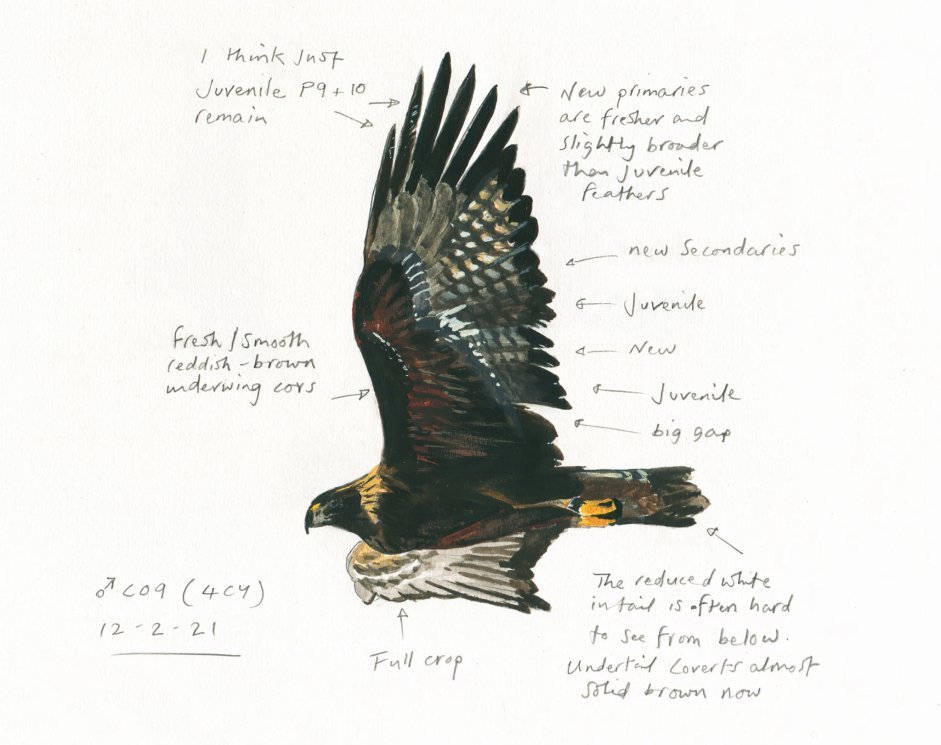 I think just
Juvenile P9 + 10
remain
New primaries
are fresher and
slightly broader
than juvenile
feathers
new secondaries
Juvenile
New
Juvenile
big gap
Fresh / smooth
reddish-brown
underwing covs
♂ C09 (4CY)
12-2-21
Full crop
The reduced white
in tail is often hard
to see from below.
Undertail coverts almost
solid brown now